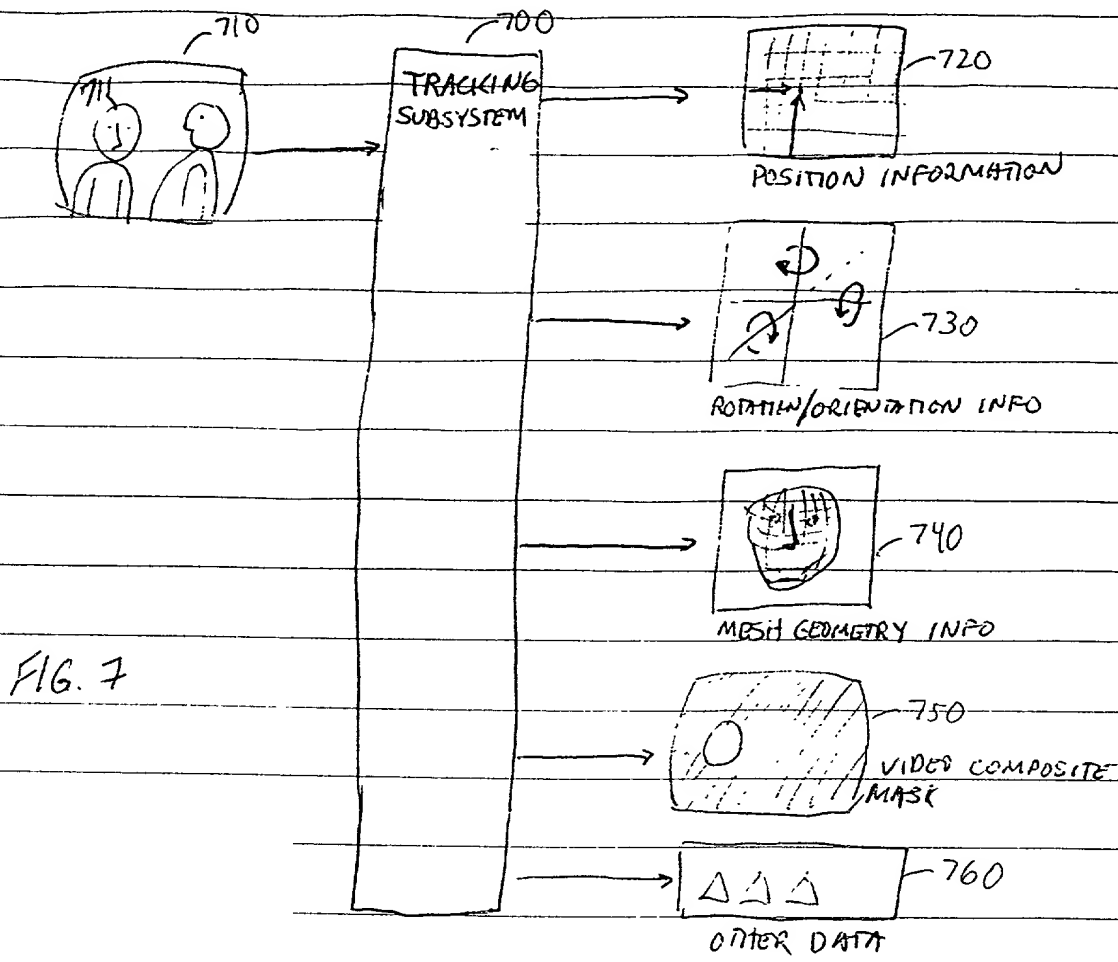 710
700
720
711
TRACKING
SUBSYSTEM
POSITION INFORMATION
730
ROTATION/ORIENTATION INFO
740
MESH GEOMETRY INFO
FIG. 7
750
VIDEO COMPOSITE
MASK
760
OTHER DATA